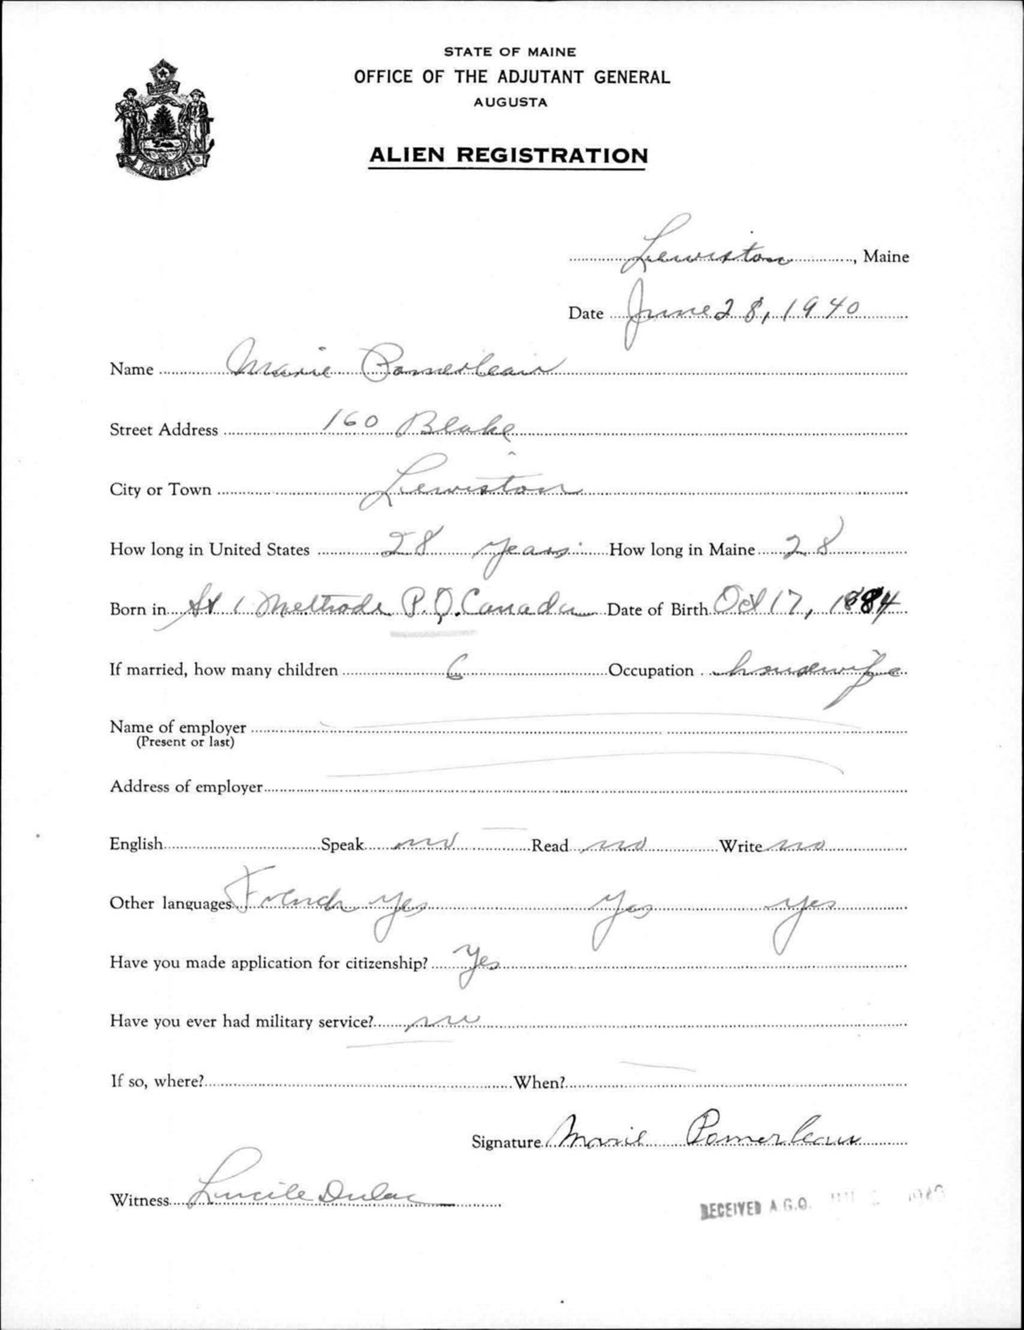 STATE OF MAINE
OFFICE OF THE ADJUTANT GENERAL
AUGUSTA
ALIEN REGISTRATION
Lewiston, Maine
Date June 28, 1940
Name Marie Pomerleau
Street Address 160 Blake
City or Town Lewiston
How long in United States 28 years How long in Maine 28
Born in St Methode P.Q. Canada Date of Birth Oct 17, 1884
If married, how many children 6 Occupation housewife
Name of employer
(Present or last)
Address of employer
English Speak no Read no Write no
Other languages French yes yes yes
Have you made application for citizenship? Yes
Have you ever had military service? no
If so, where? When?
Signature Marie Pomerleau
Witness Lucile Dulac
RECEIVED A.G.O.
MAINE